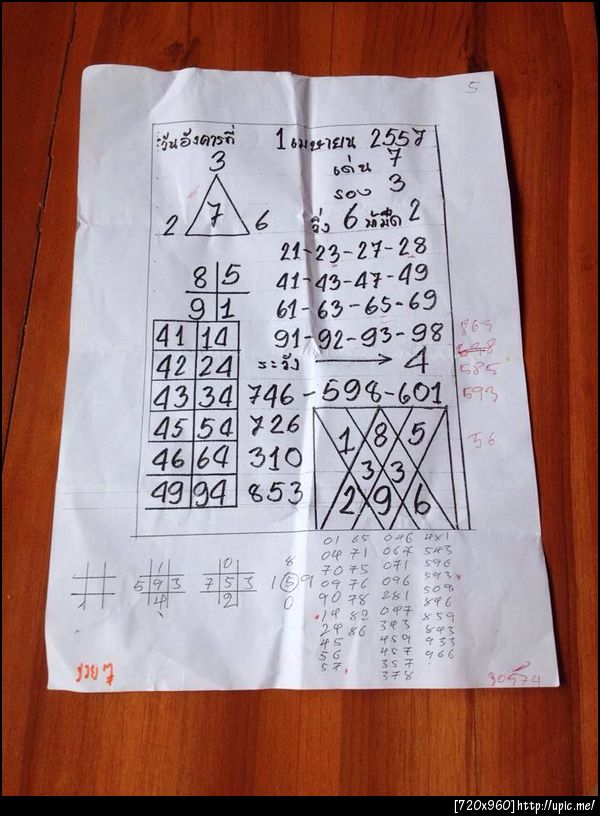 5
วันอังคารที่ 1 เมษายน 2557
3
เด่น 7
รอง 3
2 7 6
วิ่ง 6 2
21-23-27-28
8 5
41-43-47-49
9 1
61-63-65-69
41 14
91-92-93-98
863
42 24
ระวัง 4
585
43 34
746-598-601
593
45 54
726
1 8 5
56
46 64
310
3 3
49 94
853
2 9 6
01 65 046 481
04 71 067 543
70 75 071 596
09 76 096 593
90 78 281 509
14 82 047 846
24 86 343 859
45 459 843
56 457 933
57 357 966
378
1
1
5 9 3
4
0
7 5 3
2
8
1 5 9
0